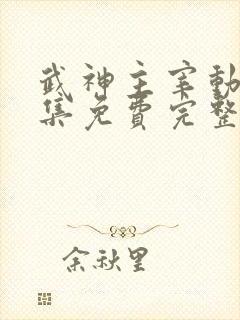 武神主宰動
集免費完整
余秋里